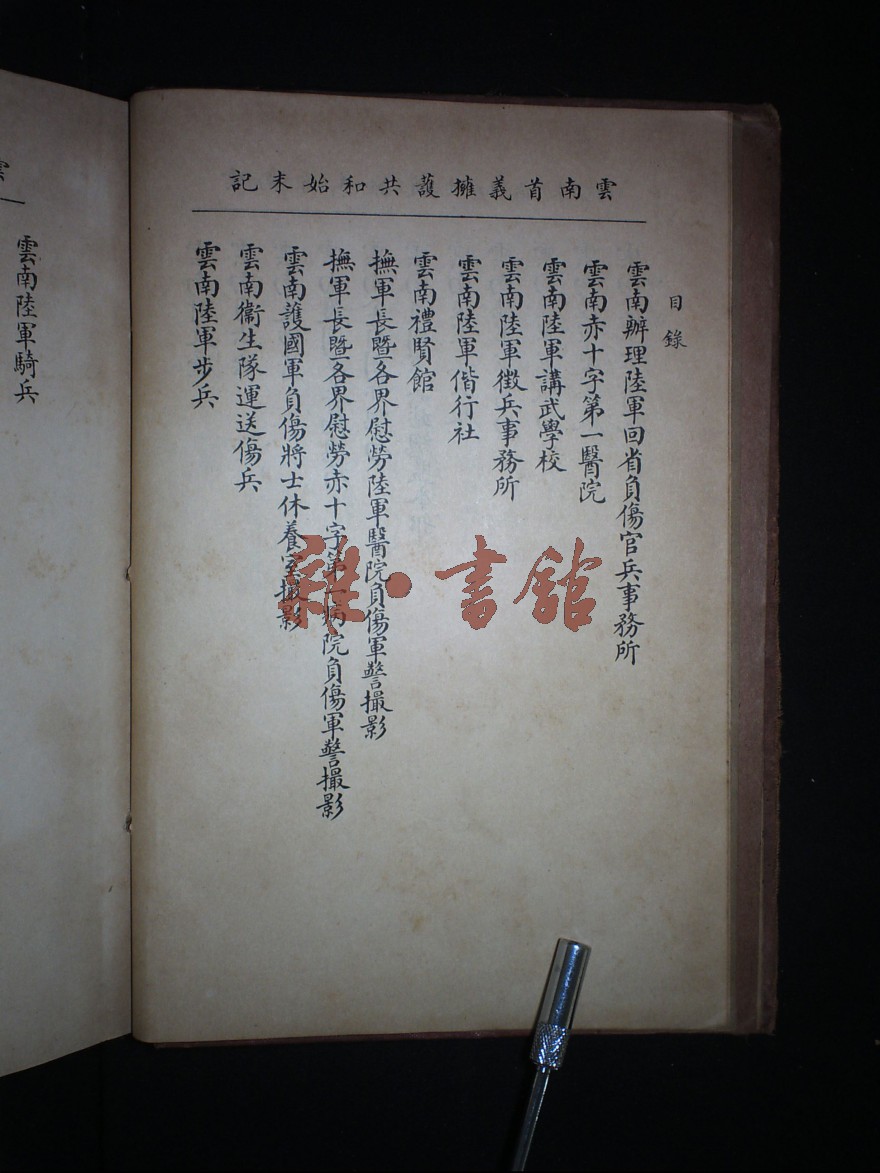 雲南首義擁護共和始末記
目錄
雲南辦理陸軍回省負傷官兵事務所
雲南赤十字第一醫院
雲南陸軍講武學校
雲南陸軍徵兵事務所
雲南陸軍偕行社
雲南禮賢館
撫軍長暨各界慰勞陸軍醫院負傷軍警撮影
撫軍長暨各界慰勞赤十字第一病院負傷軍警撮影
雲南護國軍負傷將士休養室撮影
雲南衞生隊運送傷兵
雲南陸軍步兵
雲南陸軍騎兵
雜·書館